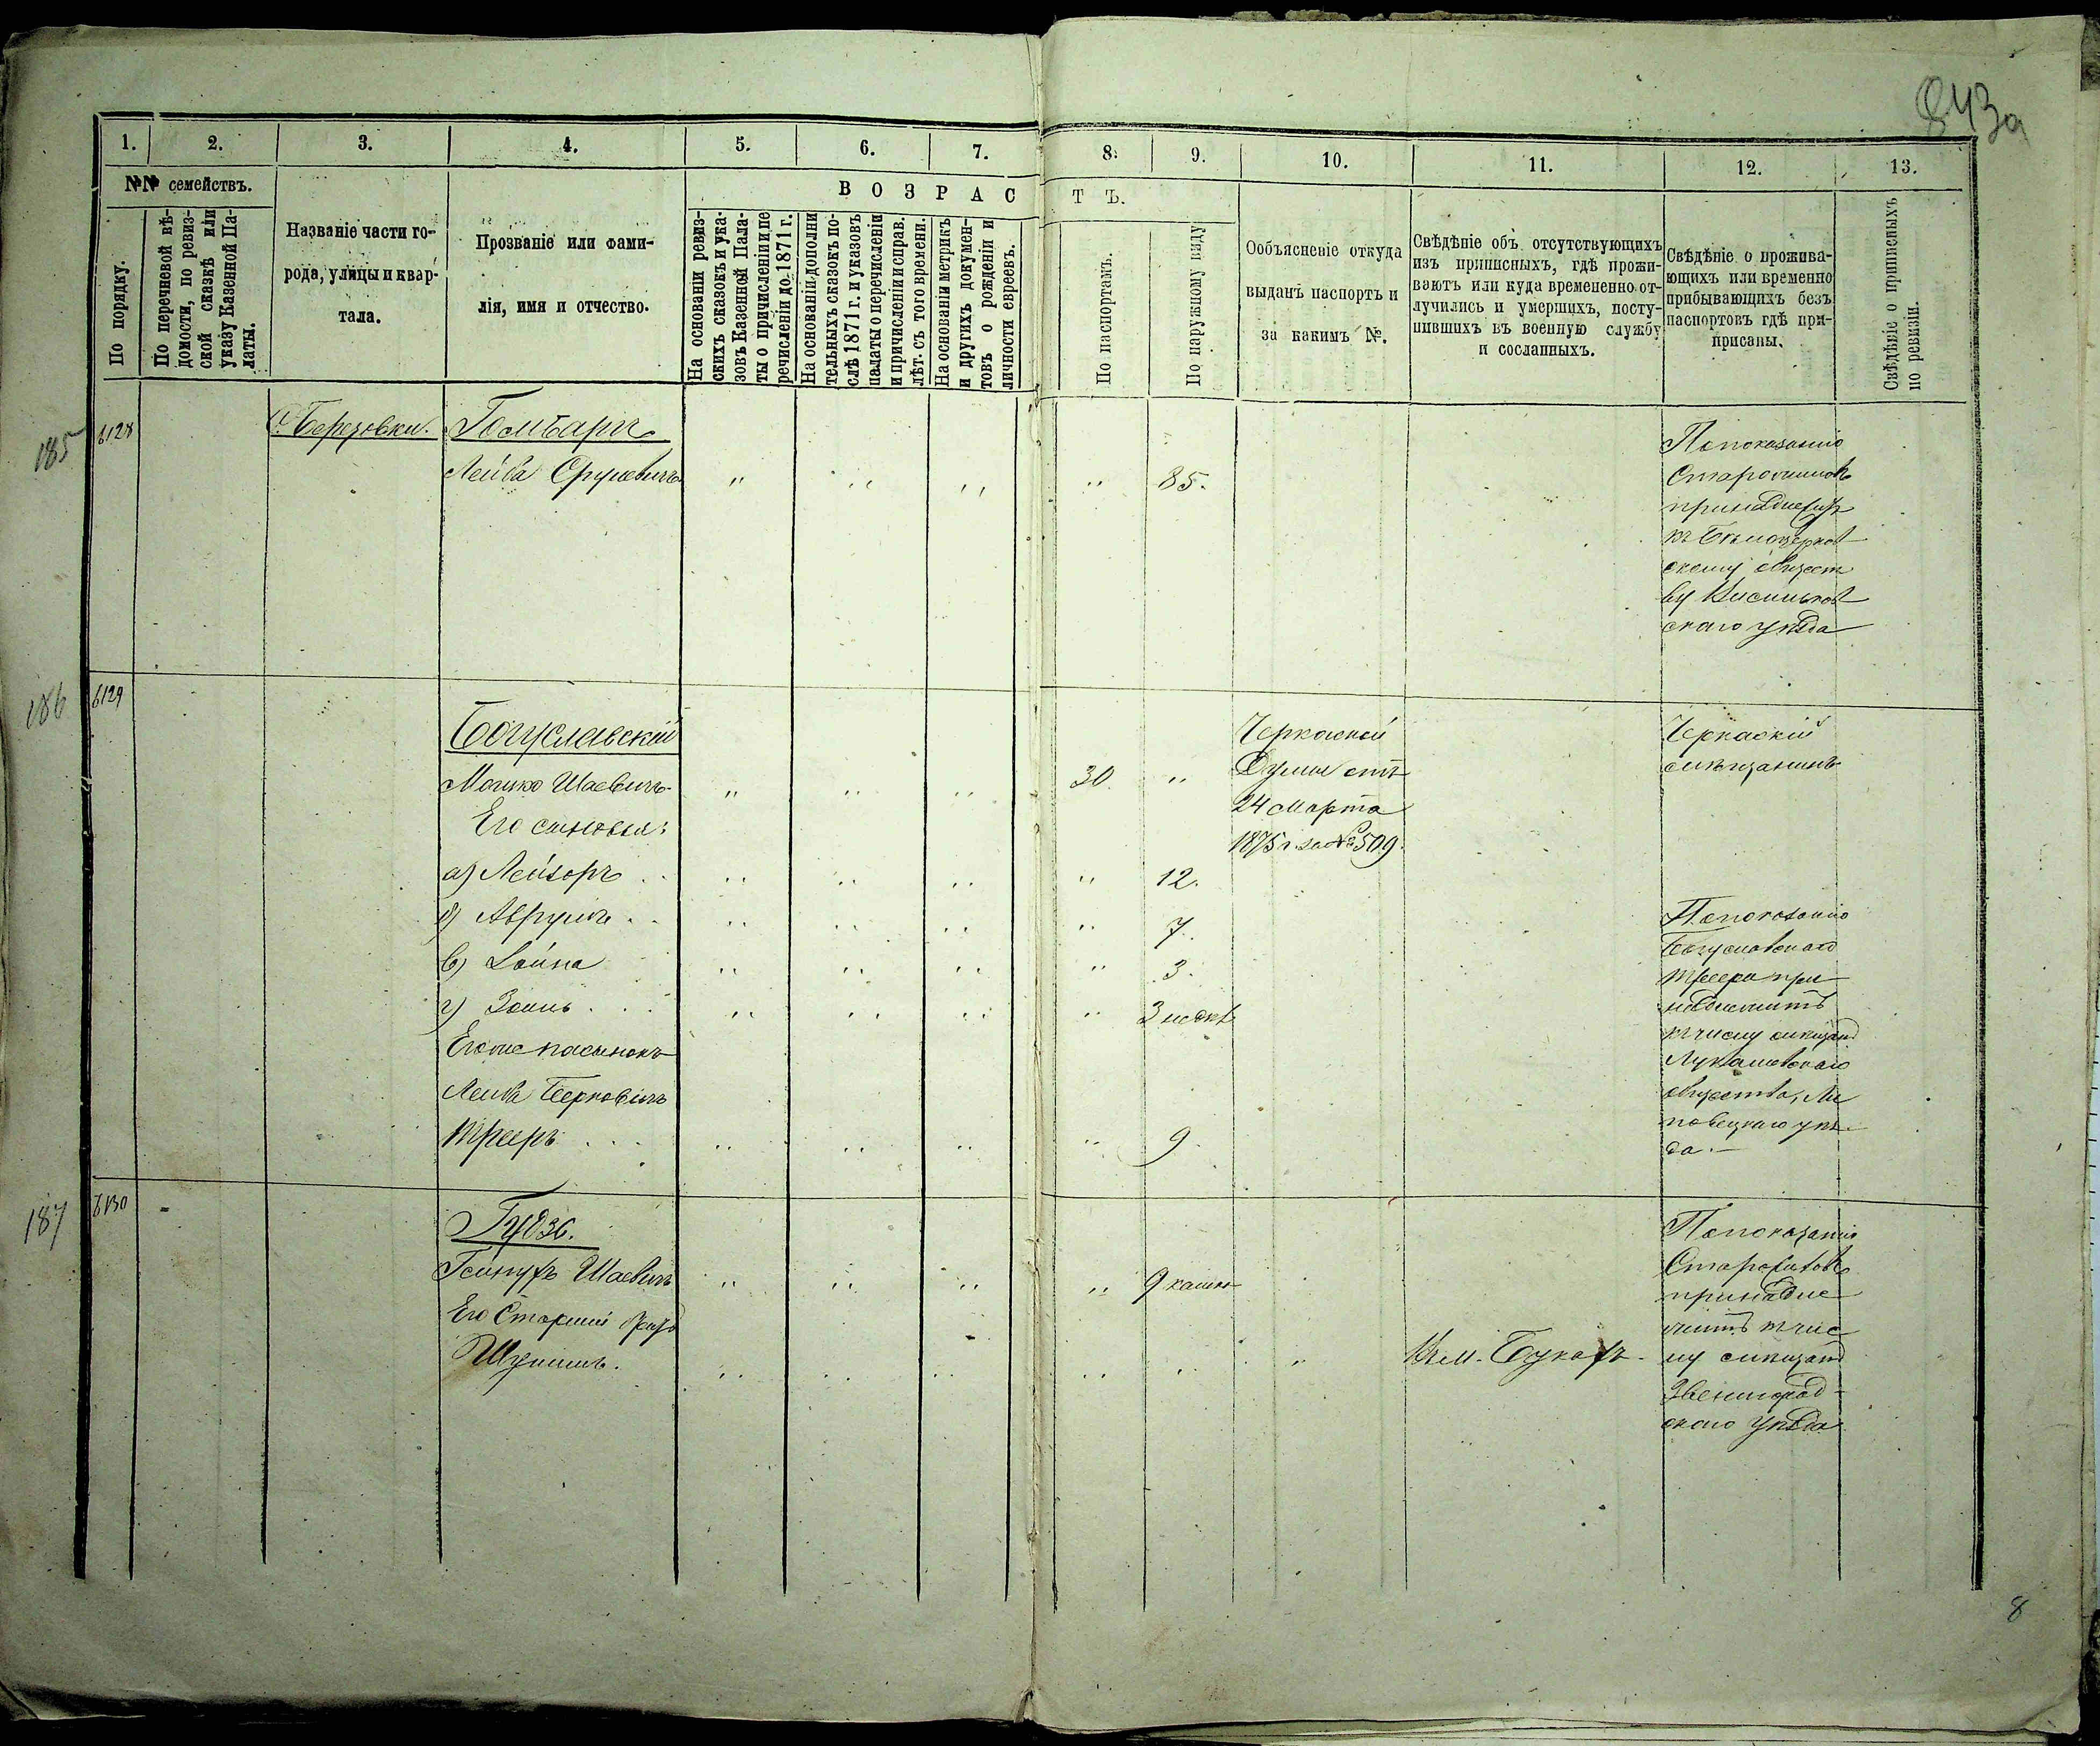 843а
1. 2. 3. 4. 5. 6. 7. 8. 9. 10. 11. 12. 13.
№№ семействъ.
По порядку.
По перечневой вѣ-
домости, по ревиз-
ской сказкѣ или
указу Казенной Па-
латы.
Названіе части го-
рода, улицы и квар-
тала.
Прозваніе или фами-
лія, имя и отчество.
ВОЗРАСТЪ.
На основаніи ревиз-
скихъ сказокъ и ука-
зовъ Казенной Пала-
ты о причисленіи и пе
речисленіи до 1871 г.
На основаніи дополни
тельныхъ сказокъ по-
слѣ 1871 г. и указовъ
палаты о перечисленіи
и причисленіи и справ.
лѣт. съ того времени.
На основаніи метрикъ
и другихъ докумен-
товъ о рожденіи и
личности евреевъ.
По паспортамъ.
По наружному виду
Ообъясненіе откуда
выданъ паспортъ и
за какимъ №.
Свѣдѣніе объ отсутствующихъ
изъ приписныхъ, гдѣ прожи-
ваютъ или куда временно от-
лучились и умершихъ, посту-
пившихъ въ военную службу
и сосланныхъ.
Свѣдѣніе о прожива-
ющихъ или временно
прибывающихъ безъ
паспортовъ гдѣ при-
писаны.
Свѣдѣніе о приписныхъ
по ревизіи.
185
6128
с. Березовки.
Гомбаръ
Лейба Срулевичъ " " " " 85.
По показанію
принадлежитъ
къ Бѣлоцерков
скому общест
ву
скаго уѣзда
186
6129
Богуславскій
Мошко Шаевичъ " " " 30. "
Его сыновья:
а) Лейзоръ " " " " 12.
б) Аврумъ " " " " 7.
в) " " " " 3.
г) " " " " 3
Его же пасынокъ
Лейба Берковичъ
" " " " 9.
Черкаской
Думы отъ
24 Марта
1875 г. за № 509.
Черкаскій
мѣщанинъ
По показанію
Богуславскаго
при
надлежитъ
къ числу мѣщанъ
Лукашевскаго
общества, Ли
повецкаго уѣз
да.
187
6130
Гудзь.
Шаевичъ " " " " 9
Его Старший братъ
" " " " " "
Въ м.
По показанію
принадле
житъ къ чис
лу мѣщанъ
Звенигород-
скаго Уѣзда
8